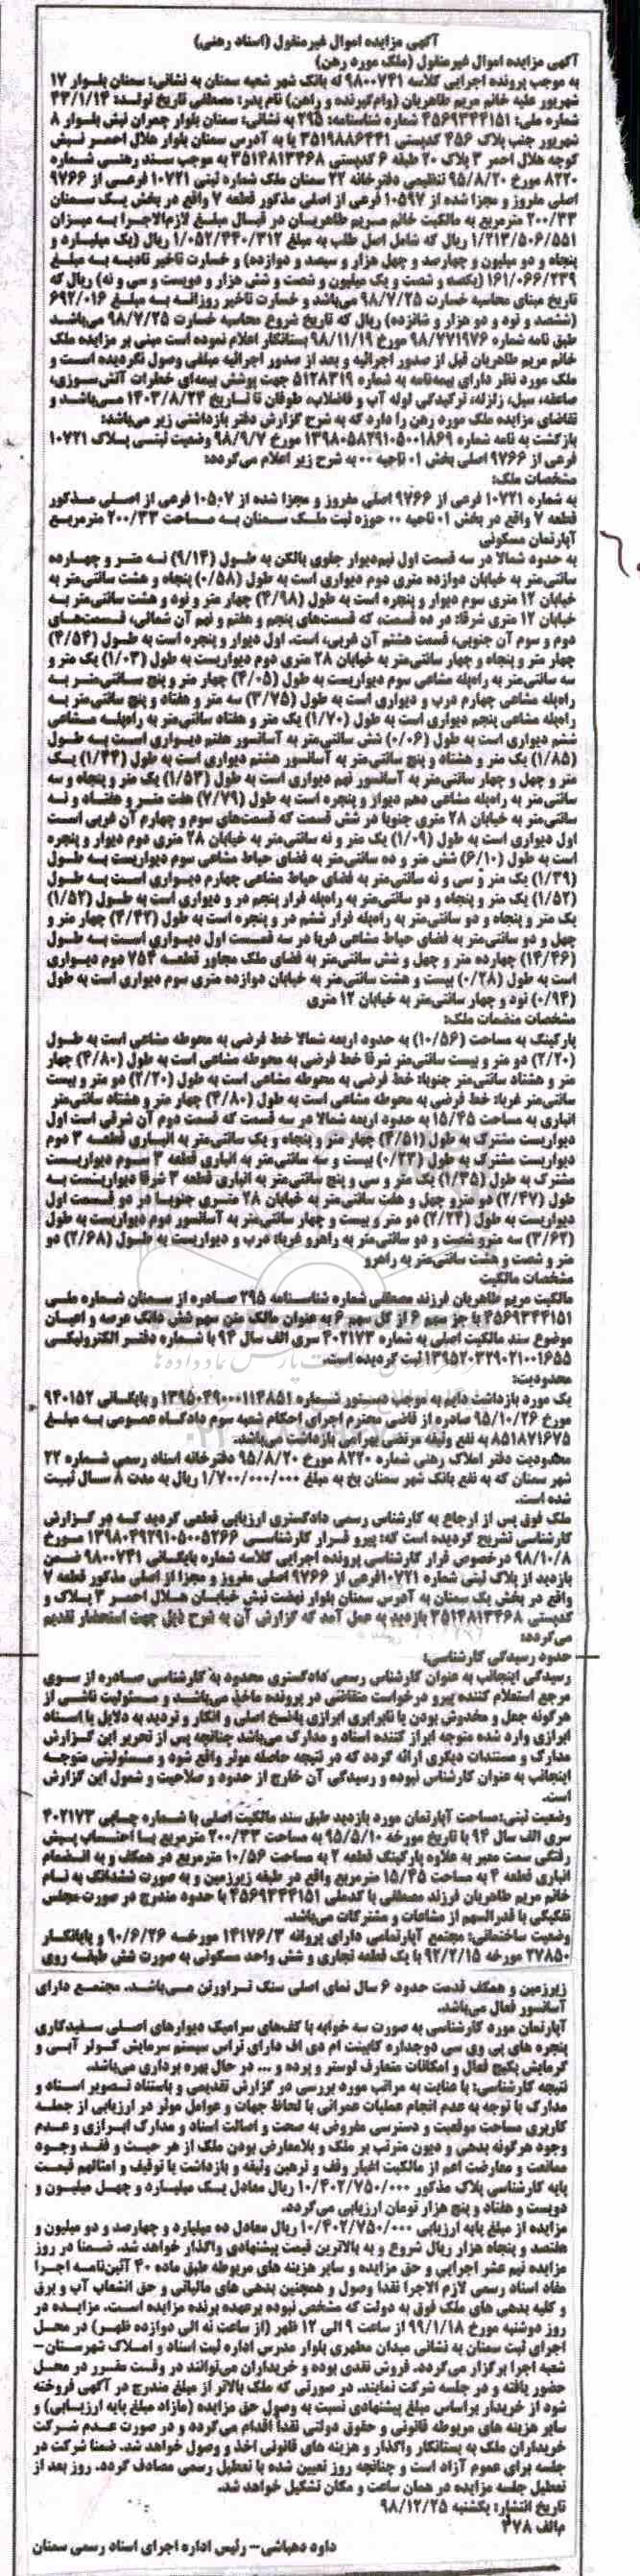 آگهی مزایده اموال غیرمنقول (اسناد رهنی)
آگهی مزایده اموال غیرمنقول (ملک مورد رهن)
به موجب پرونده اجرایی کلاسه ۹۸۰۰۷۴۱ له بانک شهر شعبه سمنان به نشانی: سمنان بلوار ۱۷
شهریور علیه خانم مریم طاهریان (وام‌گیرنده و راهن) نام پدر: مصطفی تاریخ تولد: ۴۳/۱/۱۴
شماره ملی: ۴۵۶۹۳۴۴۱۵۱ شماره شناسنامه: ۲۹۵ به نشانی: سمنان بلوار چمران نبش بلوار ۸
شهریور جنب پلاک ۴۵۶ کدپستی ۳۵۱۹۸۸۶۴۴۱ یا به آدرس سمنان بلوار هلال احمر نبش
کوچه هلال احمر ۳ پلاک ۲۰ طبقه ۶ کدپستی ۳۵۱۴۸۱۳۴۶۸ به موجب سند رهنی شماره
۸۲۲۰ مورخ ۹۵/۸/۲۰ تنظیمی دفترخانه ۲۲ سمنان ملک شماره ثبتی ۱۰۷۲۱ فرعی از ۹۷۶۶
اصلی مفروز و مجزا شده از ۱۰۵۹۷ فرعی از اصلی مذکور قطعه ۷ واقع در بخش یک سمنان
۲۰۰/۳۳ مترمربع به مالکیت خانم مریم طاهریان در قبال مبلغ لازم‌الاجرا به میزان
۱/۲۱۳/۵۰۶/۵۵۱ ریال که شامل اصل طلب به مبلغ ۱/۰۵۲/۴۴۰/۳۱۲ ریال (یک میلیارد و
پنجاه و دو میلیون و چهارصد و چهل هزار و سیصد و دوازده) و خسارت تاخیر تادیه به مبلغ
۱۶۱/۰۶۶/۲۳۹ (یکصد و شصت و یک میلیون و شصت و شش هزار و دویست و سی و نه) ریال که
تاریخ مبنای محاسبه خسارت ۹۸/۷/۲۵ می‌باشد و خسارت تاخیر روزانه به مبلغ ۶۹۲/۰۱۶
(ششصد و نود و دو هزار و شانزده) ریال که تاریخ شروع محاسبه خسارت ۹۸/۷/۲۵ می‌باشد
طبق نامه شماره ۹۸/۷۷۱۹۷۶ مورخ ۹۸/۱۱/۱۹ بستانکار اعلام نموده است مبنی بر مزایده ملک
خانم مریم طاهریان قبل از صدور اجرائیه و بعد از صدور اجرائیه مبلغی وصول نگردیده است و
ملک مورد نظر دارای بیمه‌نامه به شماره ۵۱۲۸۳۱۹ جهت پوشش بیمه‌ای خطرات آتش‌سوزی،
صاعقه، سیل، زلزله، ترکیدگی لوله آب و فاضلاب، طوفان تا تاریخ ۱۴۰۳/۸/۲۴ می‌باشد و
تقاضای مزایده ملک مورد رهن را دارد که به شرح گزارش دفتر بازداشتی زیر می‌باشد:
بازگشت به نامه شماره ۱۳۹۸۰۵۸۲۹۱۰۵۰۰۱۸۶۹ مورخ ۹۸/۹/۷ وضعیت ثبتی پلاک ۱۰۷۲۱
فرعی از ۹۷۶۶ اصلی بخش ۰۱ ناحیه ۰۰ به شرح زیر اعلام می‌گردد:
مشخصات ملک:
به شماره ۱۰۷۲۱ فرعی از ۹۷۶۶ اصلی مفروز و مجزا شده از ۱۰۵۰۷ فرعی از اصلی مذکور
قطعه ۷ واقع در بخش ۰۱ ناحیه ۰۰ حوزه ثبت ملک سمنان به مساحت ۲۰۰/۳۳ مترمربع
آپارتمان مسکونی
به حدود شمالا در سه قسمت اول نیم‌دیوار جلوی بالکن به طول (۹/۱۴) نه متر و چهارده
سانتی‌متر به خیابان دوازده متری دوم دیواری است به طول (۰/۵۸) پنجاه و هشت سانتی‌متر به
خیابان ۱۲ متری سوم دیوار و پنجره است به طول (۴/۹۸) چهار متر و نود و هشت سانتی‌متر به
خیابان ۱۲ متری شرقا: در ده قسمت، که قسمت‌های پنجم و هفتم و نهم آن شمالی، قسمت‌های
دوم و سوم آن جنوبی، قسمت هشتم آن غربی، است. اول دیوار و پنجره است به طول (۴/۵۴)
چهار متر و پنجاه و چهار سانتی‌متر به خیابان ۲۸ متری دوم دیواریست به طول (۱/۰۳) یک متر و
سه سانتی‌متر به راه‌پله مشاعی سوم دیواریست به طول (۴/۰۵) چهار متر و پنج سانتی‌متر به
راه‌پله مشاعی چهارم درب و دیواری است به طول (۳/۷۵) سه متر و هفتاد و پنج سانتی‌متر به
راه‌پله مشاعی پنجم دیواری است به طول (۱/۷۰) یک متر و هفتاد سانتی‌متر به راه‌پله مشاعی
ششم دیواری است به طول (۰/۰۶) شش سانتی‌متر به آسانسور هفتم دیواری است به طول
(۱/۸۵) یک متر و هشتاد و پنج سانتی‌متر به آسانسور هشتم دیواری است به طول (۱/۴۴) یک
متر و چهل و چهار سانتی‌متر به آسانسور نهم دیواری است به طول (۱/۵۳) یک متر و پنجاه و سه
سانتی‌متر به راه‌پله مشاعی دهم دیوار و پنجره است به طول (۷/۷۹) هفت متر و هفتاد و نه
سانتی‌متر به خیابان ۲۸ متری جنوبا در شش قسمت که قسمت‌های سوم و چهارم آن غربی است
اول دیواری است به طول (۱/۰۹) یک متر و نه سانتی‌متر به خیابان ۲۸ متری دوم دیوار و پنجره
است به طول (۶/۱۰) شش متر و ده سانتی‌متر به فضای حیاط مشاعی سوم دیواریست به طول
(۱/۳۹) یک متر و سی و نه سانتی‌متر به فضای حیاط مشاعی چهارم دیواری است به طول
(۱/۵۲) یک متر و پنجاه و دو سانتی‌متر به راه‌پله فرار پنجم در و دیواری است به طول (۱/۵۲)
یک متر و پنجاه و دو سانتی‌متر به راه‌پله فرار ششم در و پنجره است به طول (۴/۴۲) چهار متر و
چهل و دو سانتی‌متر به فضای حیاط مشاعی غربا در سه قسمت اول دیواری است به طول
(۱۴/۴۶) چهارده متر و چهل و شش سانتی‌متر به فضای ملک مجاور قطعه ۷۵۴ دوم دیواری
است به طول (۰/۲۸) بیست و هشت سانتی‌متر به خیابان دوازده متری سوم دیواری است به طول
(۰/۹۴) نود و چهار سانتی‌متر به خیابان ۱۲ متری
مشخصات منضمات ملک:
پارکینگ به مساحت (۱۰/۵۶) به حدود اربعه شمالا خط فرضی به محوطه مشاعی است به طول
(۲/۲۰) دو متر و بیست سانتی‌متر شرقا خط فرضی به محوطه مشاعی است به طول (۴/۸۰) چهار
متر و هشتاد سانتی‌متر جنوبا: خط فرضی به محوطه مشاعی است به طول (۲/۲۰) دو متر و بیست
سانتی‌متر غربا: خط فرضی به محوطه مشاعی است به طول (۴/۸۰) چهار متر و هشتاد سانتی‌متر
انباری به مساحت ۱۵/۴۵ به حدود اربعه شمالا در سه قسمت که قسمت دوم آن شرقی است اول
دیواریست مشترک به طول (۴/۵۱) چهار متر و پنجاه و یک سانتی‌متر به انباری قطعه ۳ دوم
دیواریست مشترک به طول (۰/۲۳) بیست و سه سانتی‌متر به انباری قطعه ۳ سوم دیواریست
مشترک به طول (۱/۳۵) یک متر و سی و پنج سانتی‌متر به انباری قطعه ۳ شرقا دیواریست به
طول (۲/۴۷) دو مترو چهل و هفت سانتی‌متر به خیابان ۲۸ متری جنوبا در دو قسمت اول
دیواریست به طول (۲/۲۴) دو متر و بیست و چهار سانتی‌متر به آسانسور دوم دیواریست به طول
(۳/۶۲) سه مترو شصت و دو سانتی‌متر به راهرو غربا: درب و دیواریست به طول (۲/۶۸) دو
متر و شصت و هشت سانتی‌متر به راهرو
مشخصات مالکیت
مالکیت مریم طاهریان فرزند مصطفی شماره شناسنامه ۲۹۵ صادره از سمنان شماره ملی
۴۵۶۹۳۴۴۱۵۱ با جز سهم ۶ از کل سهم ۶ به عنوان مالک متن سهم شش دانگ عرصه و اعیان
موضوع سند مالکیت اصلی به شماره ۴۰۲۱۷۳ سری الف سال ۹۴ با شماره دفتر الکترونیکی
۱۳۹۵۲۰۳۲۹۰۲۱۰۰۱۶۵۵ ثبت گردیده است.
محدودیت:
یک مورد بازداشت دایم به موجب دستور شماره ۱۳۹۵۰۴۹۰۰۰۱۱۴۸۵۱ و بایگانی ۹۴۰۱۵۲
مورخ ۹۵/۱۰/۲۶ صادره از قاضی محترم اجرای احکام شعبه سوم دادگاه عمومی به مبلغ
۸۵۱۸۲۱۶۷۵ به نفع وثیقه مرتضی بهرامی بازداشت می‌باشد.
محدودیت دفتر املاک رهنی شماره ۸۲۲۰ مورخ ۹۵/۸/۲۰ دفترخانه اسناد رسمی شماره ۲۲
شهر سمنان که به نفع بانک شهر سمنان بخ به مبلغ ۱/۷۰۰/۰۰۰/۰۰۰ ریال به مدت ۸ سال ثبت
شده است.
ملک فوق پس از ارجاع به کارشناس رسمی دادگستری ارزیابی قطعی گردید که در گزارش
کارشناسی تشریح گردیده است که: پیرو قرار کارشناسی ۱۳۹۸۰۴۹۲۹۱۰۵۰۰۵۲۶۶ مورخ
۹۸/۱۰/۸ درخصوص قرار کارشناسی پرونده اجرایی کلاسه شماره بایگانی ۹۸۰۰۷۴۱ ضمن
بازدید از پلاک ثبتی شماره ۱۰۷۲۱فرعی از ۹۷۶۶ اصلی مفروز و مجزا از اصلی مذکور قطعه ۷
واقع در بخش یک سمنان به آدرس سمنان بلوار نهضت نبش خیابان هلال احمر ۳ پلاک و
کدپستی ۳۵۱۴۸۱۳۴۶۸ بازدید به عمل آمد که گزارش آن به شرح ذیل جهت استحضار تقدیم
می‌گردد:
حدود رسیدگی کارشناسی:
رسیدگی اینجانب به عنوان کارشناس رسمی دادگستری محدود به کارشناسی صادره از سوی
مرجع استعلام کننده پیرو درخواست متقاضی در پرونده ماخذ می‌باشد و مسئولیت ناشی از
هرگونه جعل و مخدوش بودن یا نابرابری ابرازی بانسخ اصلی و انکار و تردید به دلایل یا اسناد
ابرازی وارد شده متوجه ابراز کننده اسناد و مدارک می‌باشد چنانچه پس از تحریر این گزارش
مدارک و مستندات دیگری ارائه گردد که در نتیجه حاصله موثر واقع شود و مسئولیتی متوجه
اینجانب به عنوان کارشناس نبوده و رسیدگی آن خارج از حدود و صلاحیت و شمول این گزارش
است.
وضعیت ثبتی:مساحت آپارتمان مورد بازدید طبق سند مالکیت اصلی با شماره چاپی ۴۰۲۱۷۳
سری الف سال ۹۴ با تاریخ مورخه ۹۵/۵/۱۰ به مساحت ۲۰۰/۳۳ مترمربع با احتساب پیش
رفتگی سمت معبر به علاوه پارکینگ قطعه ۲ به مساحت ۱۰/۵۶ مترمربع در همکف و به انضمام
انباری قطعه ۴ به مساحت ۱۵/۴۵ مترمربع واقع در طبقه زیرزمین و به صورت ششدانگ به نام
خانم مریم طاهریان فرزند مصطفی با کدملی ۴۵۶۹۳۴۴۱۵۱ با حدود مندرج در صورت‌مجلس
تفکیکی با قدرالسهم از مشاعات و مشترکات می‌باشد.
وضعیت ساختمانی: مجتمع آپارتمانی دارای پروانه ۱۴۱۷۶/۳ مورخه ۹۰/۶/۲۶ و پایانکار
۲۷۸۵۰ مورخه ۹۲/۲/۱۵ با یک قطعه تجاری و شش واحد مسکونی به صورت شش طبقه روی
زیرزمین و همکف قدمت حدود ۶ سال نمای اصلی سنگ تراورتن می‌باشد. مجتمع دارای
آسانسور فعال می‌باشد.
آپارتمان مورد کارشناسی به صورت سه خوابه با کف‌های سرامیک دیوارهای اصلی سفیدکاری
پنجره های پی وی سی دوجداره کابینت ام دی اف دارای تراس سیستم سرمایش کولر آبی و
گرمایش پکیج فعال و امکانات متعارف لوستر و پرده و ... در حال بهره برداری می‌باشد.
نتیجه کارشناسی: با عنایت به مراتب مورد بررسی در گزارش تقدیمی و باستناد تصویر اسناد و
مدارک با توجه به عدم انجام عملیات عمرانی با لحاظ جهات و عوامل موثر در ارزیابی از جمله
کاربری مساحت موقعیت و دسترسی مفروض به صحت و اصالت اسناد و مدارک ابرازی و عدم
وجود هرگونه بدهی و دیون مترتب بر ملک و بلامعارض بودن ملک از هر حیث و فقد وجود
ممانعت و معارضت اعم از مالکیت اغیار وقف و ترهین وثیقه و بازداشت یا توقیف و امثالهم قیمت
پایه کارشناسی پلاک مذکور ۱۰/۴۰۲/۷۵۰/۰۰۰ ریال معادل یک میلیارد و چهل میلیون و
دویست و هفتاد و پنج هزار تومان ارزیابی می‌گردد.
مزایده از مبلغ پایه ارزیابی ۱۰/۴۰۲/۷۵۰/۰۰۰ ریال معادل ده میلیارد و چهارصد و دو میلیون و
هفتصد و پنجاه هزار ریال شروع و به بالاترین قیمت پیشنهادی واگذار خواهد شد. ضمنا در روز
مزایده نیم عشر اجرایی و حق مزایده و سایر هزینه های مربوطه طبق ماده ۴۰ آئین‌نامه اجرا
مفاد اسناد رسمی لازم الاجرا نقدا وصول و همچنین بدهی های مالیاتی و حق انشعاب آب و برق
و کلیه بدهی های ملک فوق به دولت که مشخص نبوده برعهده برنده مزایده است. مزایده در
روز دوشنبه مورخ ۹۹/۱/۱۸ از ساعت ۹ الی ۱۲ ظهر (از ساعت نه الی دوازده ظهر) در محل
اجرای ثبت سمنان به نشانی میدان مطهری بلوار مدرس اداره ثبت اسناد و املاک شهرستان-
شعبه اجرا برگزار می‌گردد. فروش نقدی بوده و خریداران می‌توانند در وقت مقرر در محل
حضور یافته و در جلسه شرکت نمایند. در صورتی که ملک بالاتر از مبلغ مندرج در آگهی فروخته
شود از خریدار براساس مبلغ پیشنهادی نسبت به وصول حق مزایده (مازاد مبلغ پایه ارزیابی) و
سایر هزینه های مربوطه قانونی و حقوق دولتی نقدا اقدام می‌گردد و در صورت عدم شرکت
خریداران ملک به بستانکار واگذار و هزینه های قانونی اخذ و وصول خواهد شد. ضمنا شرکت در
جلسه برای عموم آزاد است و چنانچه روز تعیین شده با تعطیل رسمی مصادف گردد. روز بعد از
تعطیل جلسه مزایده در همان ساعت و مکان تشکیل خواهد شد.
تاریخ انتشار: یکشنبه ۹۸/۱۲/۲۵
م/الف ۳۷۸
داود دهباشی- رئیس اداره اجرای اسناد رسمی سمنان